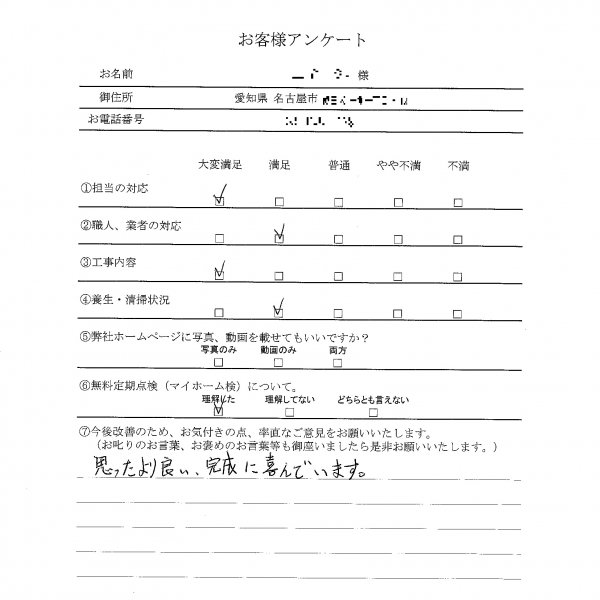 お客様アンケート
お名前 様
御住所 愛知県 名古屋市
お電話番号
大変満足 満足 普通 やや不満 不満
①担当の対応
②職人、業者の対応
③工事内容
④養生・清掃状況
⑤弊社ホームページに写真、動画を載せてもいいですか？
写真のみ 動画のみ 両方
⑥無料定期点検（マイホーム検）について。
理解した 理解してない どちらとも言えない
⑦今後改善のため、お気付きの点、率直なご意見をお願いいたします。
（お叱りのお言葉、お褒めのお言葉等も御座いましたら是非お願いいたします。）
思ったより良い、完成に喜んでいます。